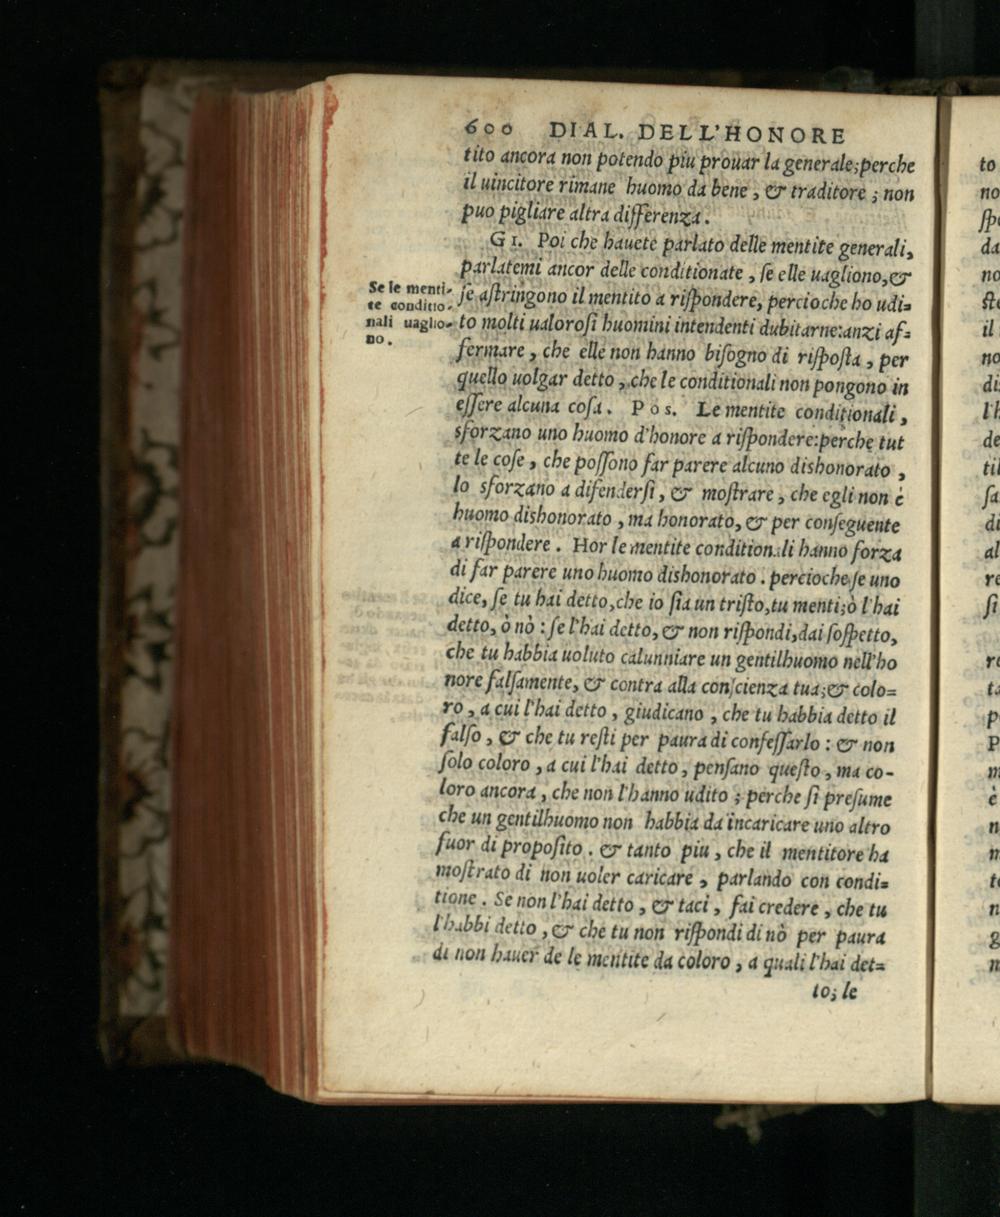 600 DIAL. DELL'HONORE
tito ancora non potendo piu prouar la generale; perche
il uincitore rimane huomo da bene, & traditore; non
puo pigliare altra differenza.
GI. Poi che hauete parlato delle mentite generali,
parlatemi ancor delle conditionate, ſe elle uagliono, &
ſe aſtringono il mentito a riſpondere, percioche ho udi=
to molti ualoroſi huomini intendenti dubitarne: anzi af=
fermare, che elle non hanno biſogno di riſpoſta, per
quello uolgar detto, che le conditionali non pongono in
eſſere alcuna coſa. Pos. Le mentite conditionali,
sforzano uno huomo d'honore a riſpondere: perche tut
te le coſe, che poſſono far parere alcuno dishonorato,
lo sforzano a difenderſi, & moſtrare, che egli non è
huomo dishonorato, ma honorato, & per conſeguente
a riſpondere. Hor le mentite conditionali hanno forza
di far parere uno huomo dishonorato. percioche ſe uno
dice, ſe tu hai detto, che io ſia un triſto, tu menti; ò l'hai
detto, ò nò: ſe l'hai detto, & non riſpondi, dai ſoſpetto,
che tu habbia uoluto calunniare un gentilhuomo nell'ho
nore falſamente, & contra alla conſcienza tua; & colo=
ro, a cui l'hai detto, giudicano, che tu habbia detto il
falſo, & che tu reſti per paura di confeſſarlo: & non
ſolo coloro, a cui l'hai detto, penſano queſto, ma co-
loro ancora, che non l'hanno udito; perche ſi preſume
che un gentilhuomo non habbia da incaricare uno altro
fuor di propoſito. & tanto piu, che il mentitore ha
moſtrato di non uoler caricare, parlando con condi=
tione. Se non l'hai detto, & taci, fai credere, che tu
l'habbi detto, & che tu non riſpondi di nò per paura
di non hauer de le mentite da coloro, a quali l'hai det=
to; le
Se le menti-
te conditio-
nali uaglio-
no.
to
no
da
no
il
no
l'h
de
di
al
re
ſi